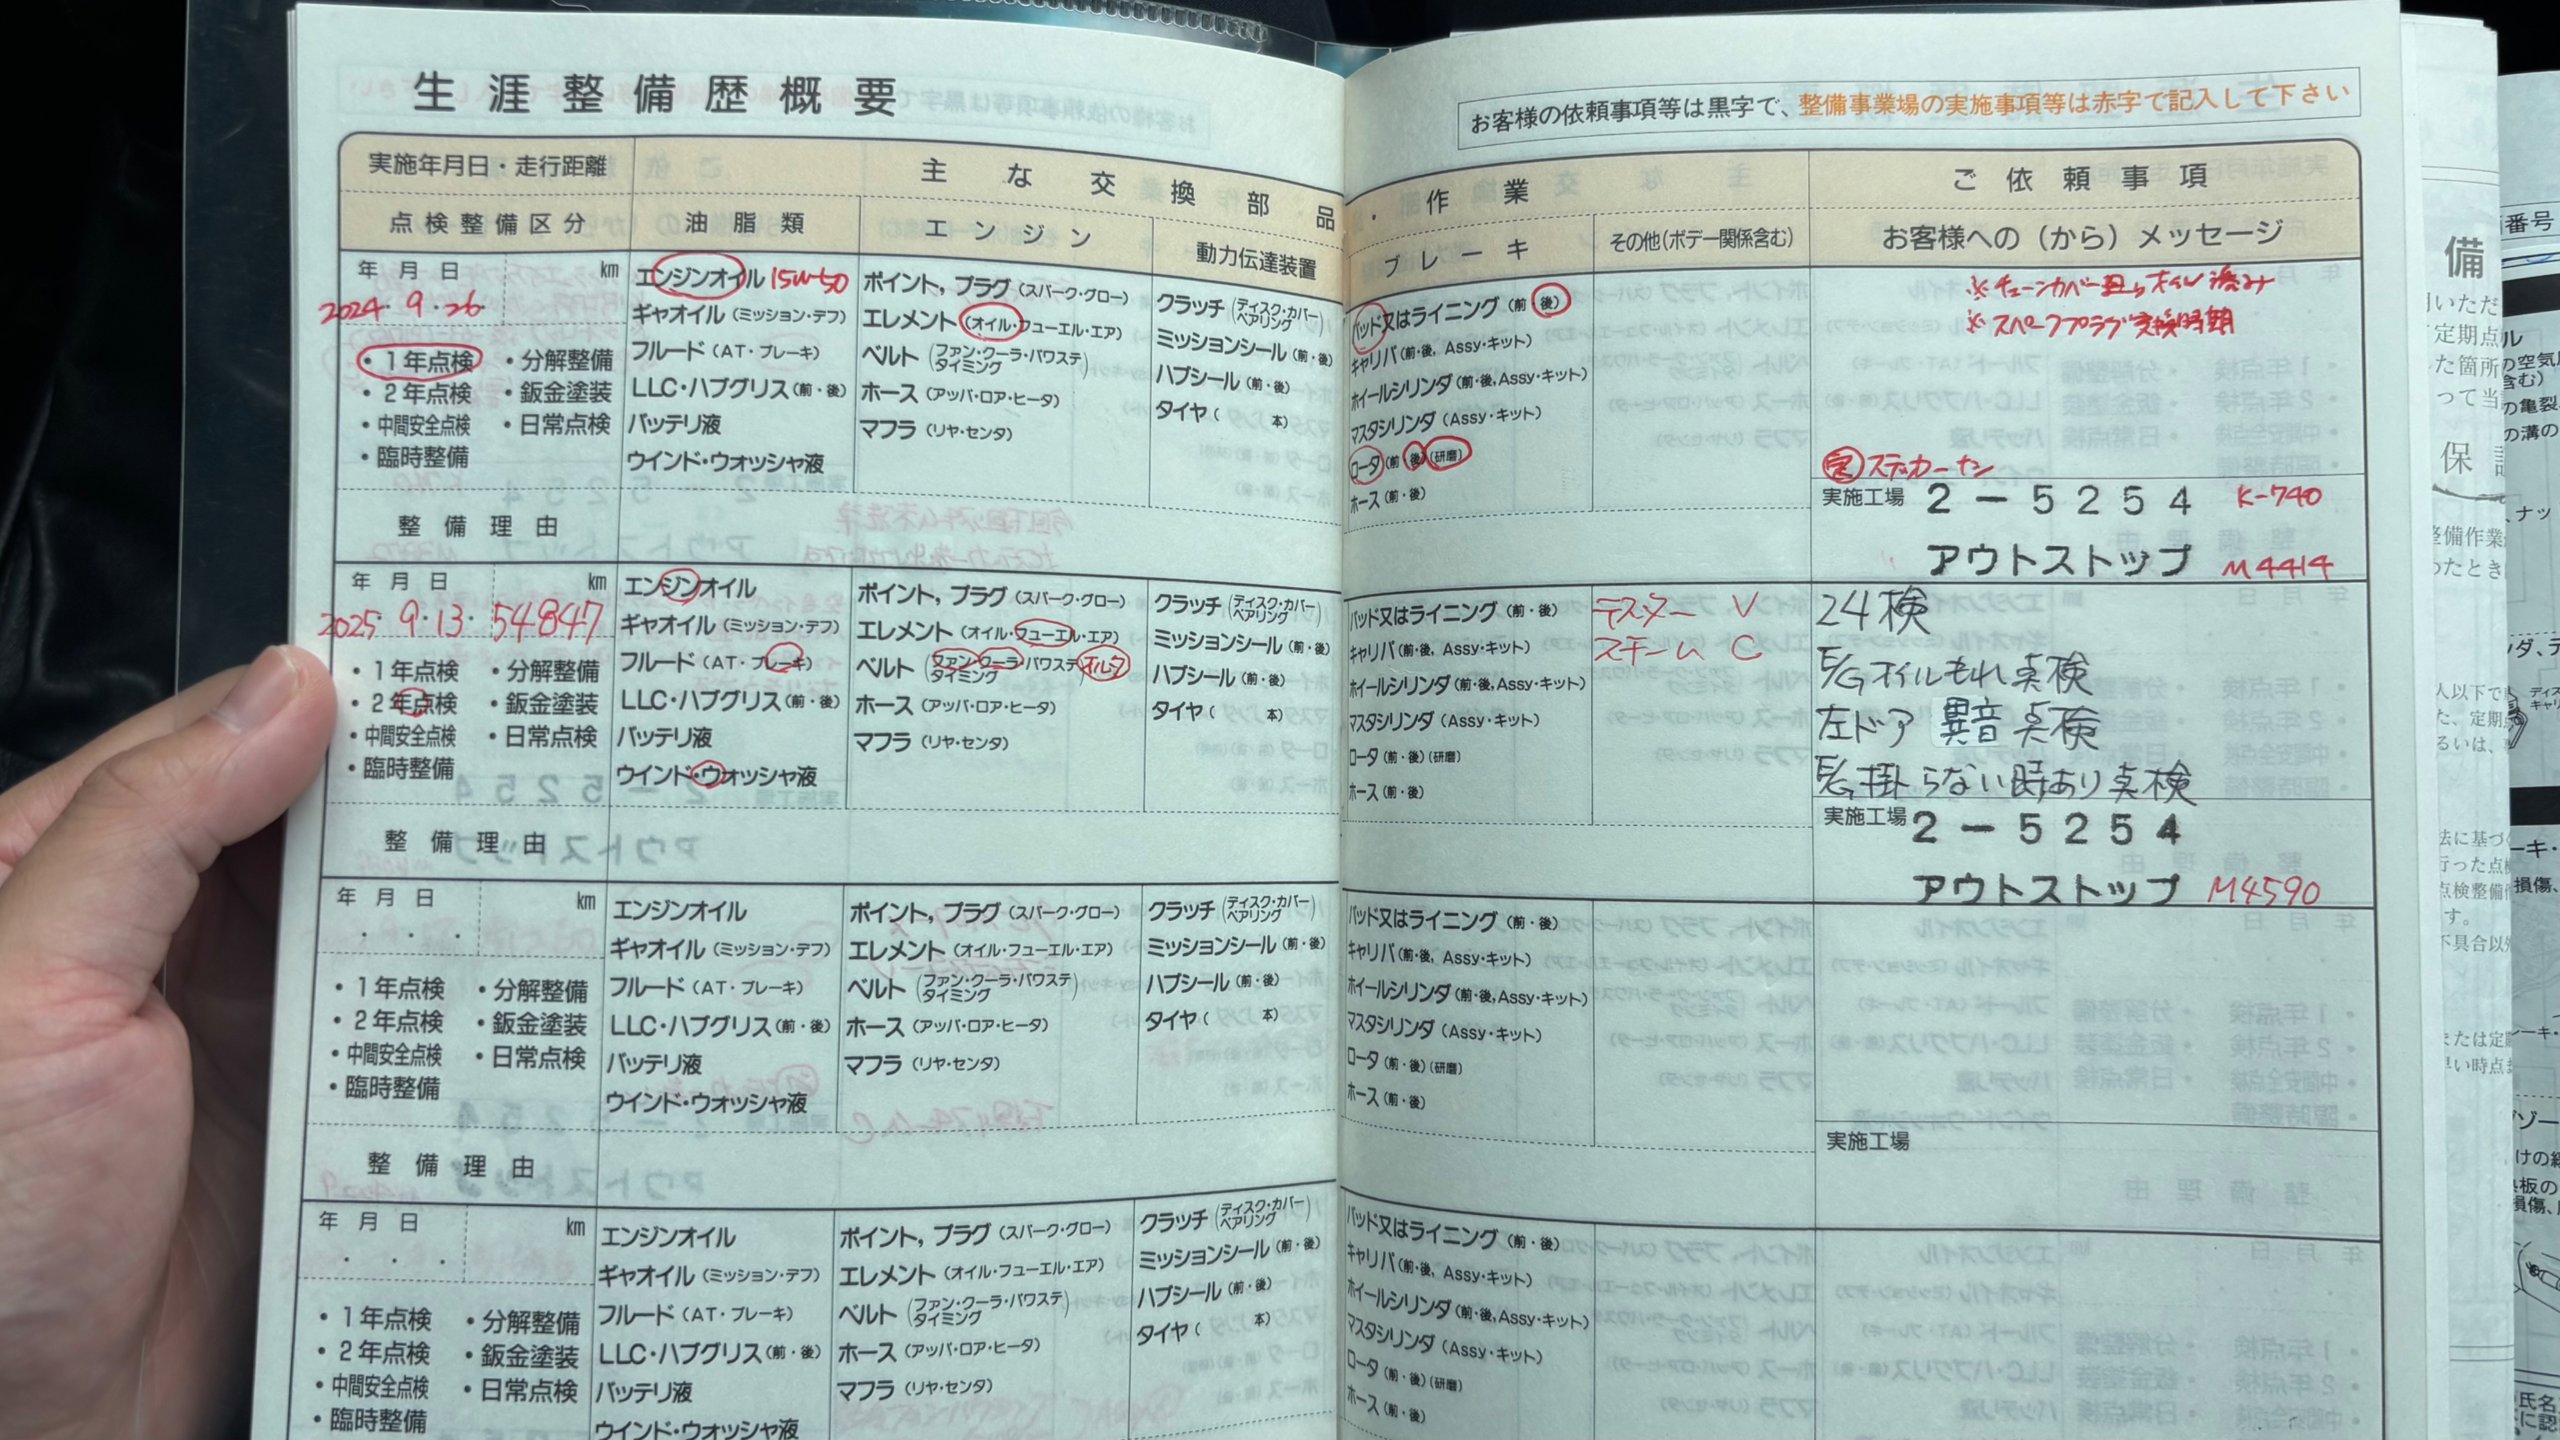 生涯整備歴概要
お客様の依頼事項等は黒字で、整備事業場の実施事項等は赤字で記入して下さい
実施年月日・走行距離
主な交換部品・作業
ご依頼事項
点検整備区分
油脂類
エンジン
動力伝達装置
ブレーキ
その他(ボデー関係含む)
お客様への(から)メッセージ
年 月 日 km
2024・9・26
・1年点検 ・分解整備
・2年点検 ・鈑金塗装
・中間安全点検 ・日常点検
・臨時整備
整備理由
エンジンオイル 15W-50
ギャオイル(ミッション・デフ)
フルード(AT・ブレーキ)
LLC・ハブグリス(前・後)
バッテリ液
ウインド・ウォッシャ液
ポイント, プラグ(スパーク・グロー)
エレメント(オイル・フューエル・エア)
ベルト(ファン・クーラ・パワステ タイミング)
ホース(アッパ・ロア・ヒータ)
マフラ(リヤ・センタ)
クラッチ(ディスク・カバー ベアリング)
ミッションシール(前・後)
ハブシール(前・後)
タイヤ( 本)
パッド又はライニング(前・後)
キャリパ(前・後, Assy・キット)
ホイールシリンダ(前・後, Assy・キット)
マスタシリンダ(Assy・キット)
ロータ(前・後)(研磨)
ホース(前・後)
※チェーンカバー オイル 済み
※スパークプラグ交換時期
ステッカーナシ
実施工場 2-5254 K-740
アウトストップ M4414
年 月 日 km
2025・9・13・ 54847
・1年点検 ・分解整備
・2年点検 ・鈑金塗装
・中間安全点検 ・日常点検
・臨時整備
整備理由
エンジンオイル
ギャオイル(ミッション・デフ)
フルード(AT・ブレーキ)
LLC・ハブグリス(前・後)
バッテリ液
ウインド・ウォッシャ液
ポイント, プラグ(スパーク・グロー)
エレメント(オイル・フューエル・エア)
ベルト(ファン・クーラ・パワステ タイミング) オルタ
ホース(アッパ・ロア・ヒータ)
マフラ(リヤ・センタ)
クラッチ(ディスク・カバー ベアリング)
ミッションシール(前・後)
ハブシール(前・後)
タイヤ( 本)
パッド又はライニング(前・後)
キャリパ(前・後, Assy・キット)
ホイールシリンダ(前・後, Assy・キット)
マスタシリンダ(Assy・キット)
ロータ(前・後)(研磨)
ホース(前・後)
テスター V
スチーム C
24検
E/Gオイルもれ点検
左ドア 異音点検
E/G掛らない時あり点検
実施工場 2-5254
アウトストップ M4590
年 月 日 km
・ ・ ・
・1年点検 ・分解整備
・2年点検 ・鈑金塗装
・中間安全点検 ・日常点検
・臨時整備
整備理由
エンジンオイル
ギャオイル(ミッション・デフ)
フルード(AT・ブレーキ)
LLC・ハブグリス(前・後)
バッテリ液
ウインド・ウォッシャ液
ポイント, プラグ(スパーク・グロー)
エレメント(オイル・フューエル・エア)
ベルト(ファン・クーラ・パワステ タイミング)
ホース(アッパ・ロア・ヒータ)
マフラ(リヤ・センタ)
クラッチ(ディスク・カバー ベアリング)
ミッションシール(前・後)
ハブシール(前・後)
タイヤ( 本)
パッド又はライニング(前・後)
キャリパ(前・後, Assy・キット)
ホイールシリンダ(前・後, Assy・キット)
マスタシリンダ(Assy・キット)
ロータ(前・後)(研磨)
ホース(前・後)
実施工場
年 月 日 km
・ ・ ・
・1年点検 ・分解整備
・2年点検 ・鈑金塗装
・中間安全点検 ・日常点検
・臨時整備
エンジンオイル
ギャオイル(ミッション・デフ)
フルード(AT・ブレーキ)
LLC・ハブグリス(前・後)
バッテリ液
ウインド・ウォッシャ液
ポイント, プラグ(スパーク・グロー)
エレメント(オイル・フューエル・エア)
ベルト(ファン・クーラ・パワステ タイミング)
ホース(アッパ・ロア・ヒータ)
マフラ(リヤ・センタ)
クラッチ(ディスク・カバー ベアリング)
ミッションシール(前・後)
ハブシール(前・後)
タイヤ( 本)
パッド又はライニング(前・後)
キャリパ(前・後, Assy・キット)
ホイールシリンダ(前・後, Assy・キット)
マスタシリンダ(Assy・キット)
ロータ(前・後)(研磨)
ホース(前・後)
備
保